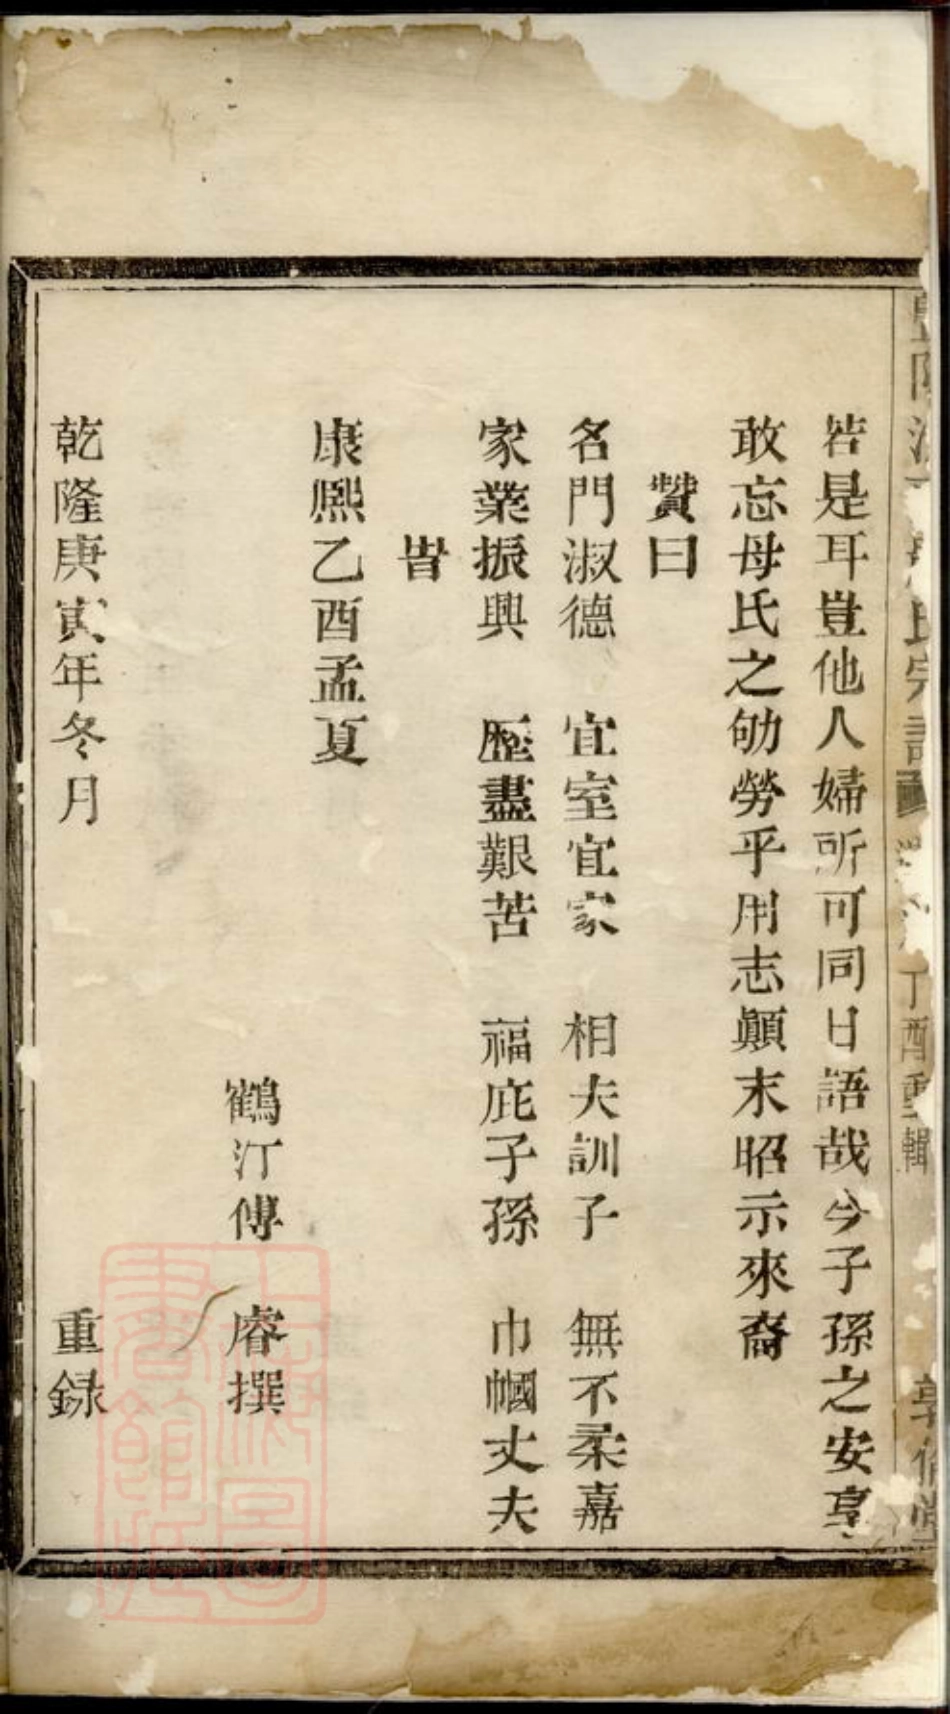 氏宗譜
丁酉重輯
若是耳豈他人婦所可同日語哉今子孫之安享
敢忘母氏之劬勞乎用志顛末昭示來裔
贊曰
名門淑德 宜室宜家 相夫訓子 無不柔嘉
家業振興 歷盡艱苦 福庇子孫 巾幗丈夫
旹
康熙乙酉孟夏
鶴汀傅 睿撰
乾隆庚寅年冬月 重錄
上海圖書館藏